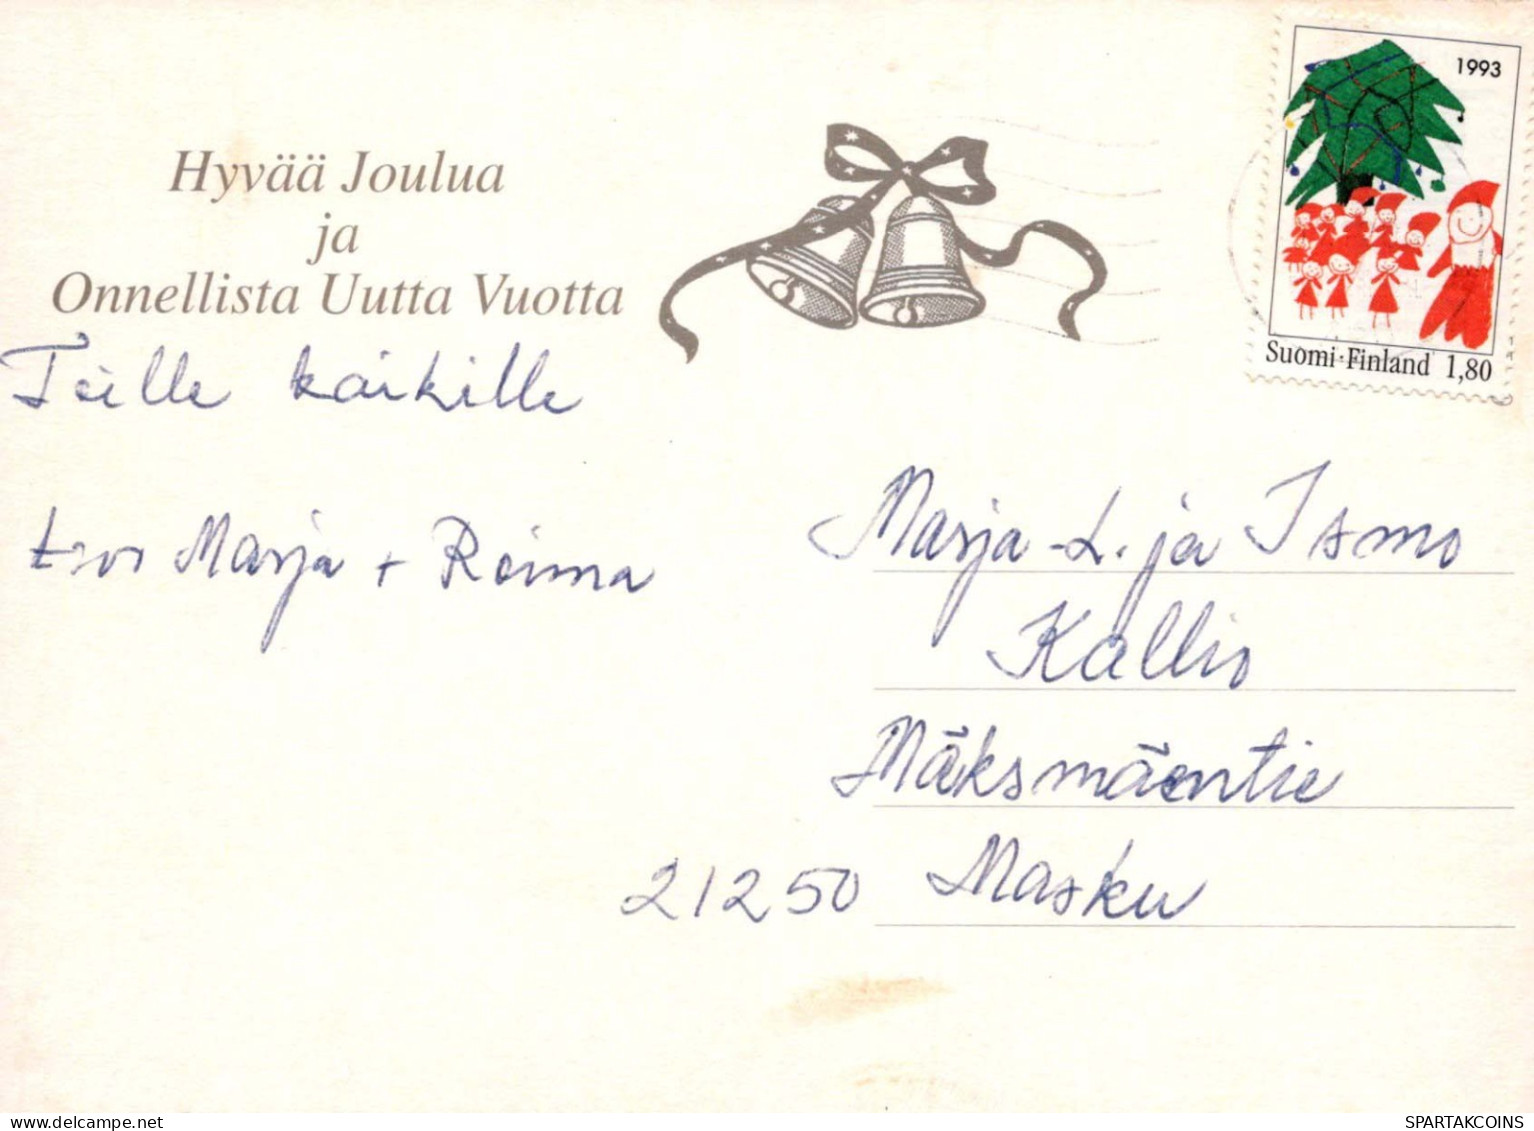 1993
Hyvää Joulua
ja
Onnellista Uutta Vuotta
Suomi·Finland 1,80
Teille kaikille
Marja + Reima
Marja-L. ja Ismo
Kallio
Mäksmäentie
21250 Masku
eurodelc.be
SPARTAKCOINS